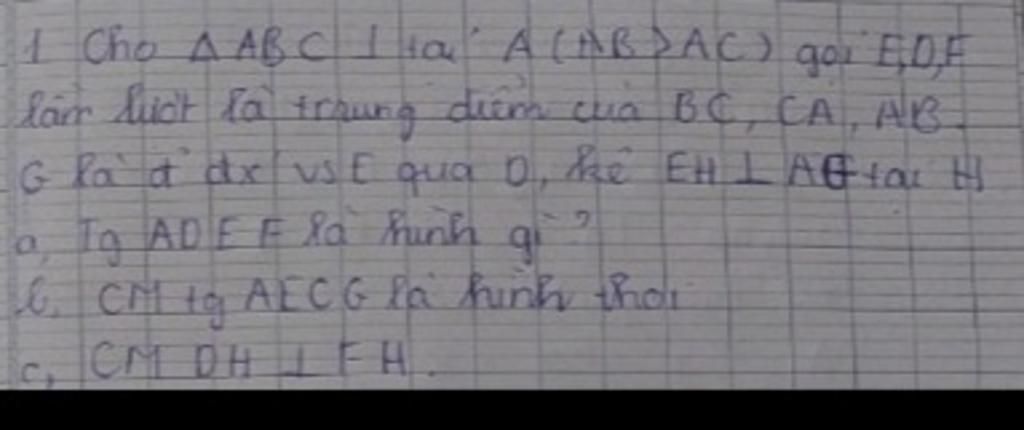 1 Cho Δ ABC ⊥ tại A (AB > AC) gọi E,D,F
lần lượt là trung điểm của BC, CA, AB.
G là đ' đx' vs E qua D, kẻ EH ⊥ AG tại H
a, Tg ADEF là hình gì?
b, CM tg AECG là hình thoi
c, CM DH ⊥ FH.